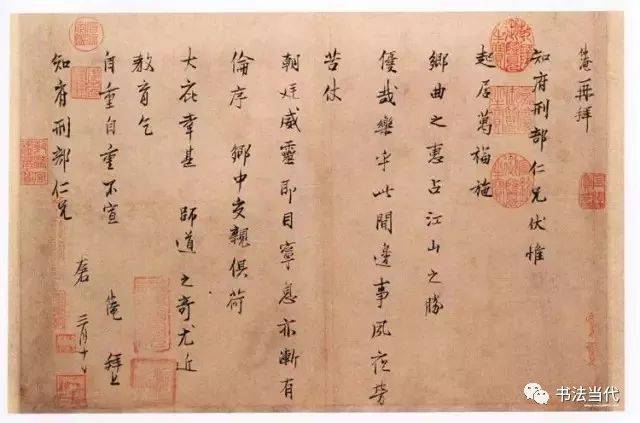 淹再拜
知府刑部仁兄伏惟
起居萬福施
鄉曲之惠占江山之勝
優哉樂乎此間邊事夙夜勞
苦仗
朝廷威靈即目寧息亦漸有
倫序鄉中交親俱荷
大庇幸甚 師道之奇尤近
教育乞
自重自重不宣 淹 拜上
知府刑部仁兄 三月十
书法当代